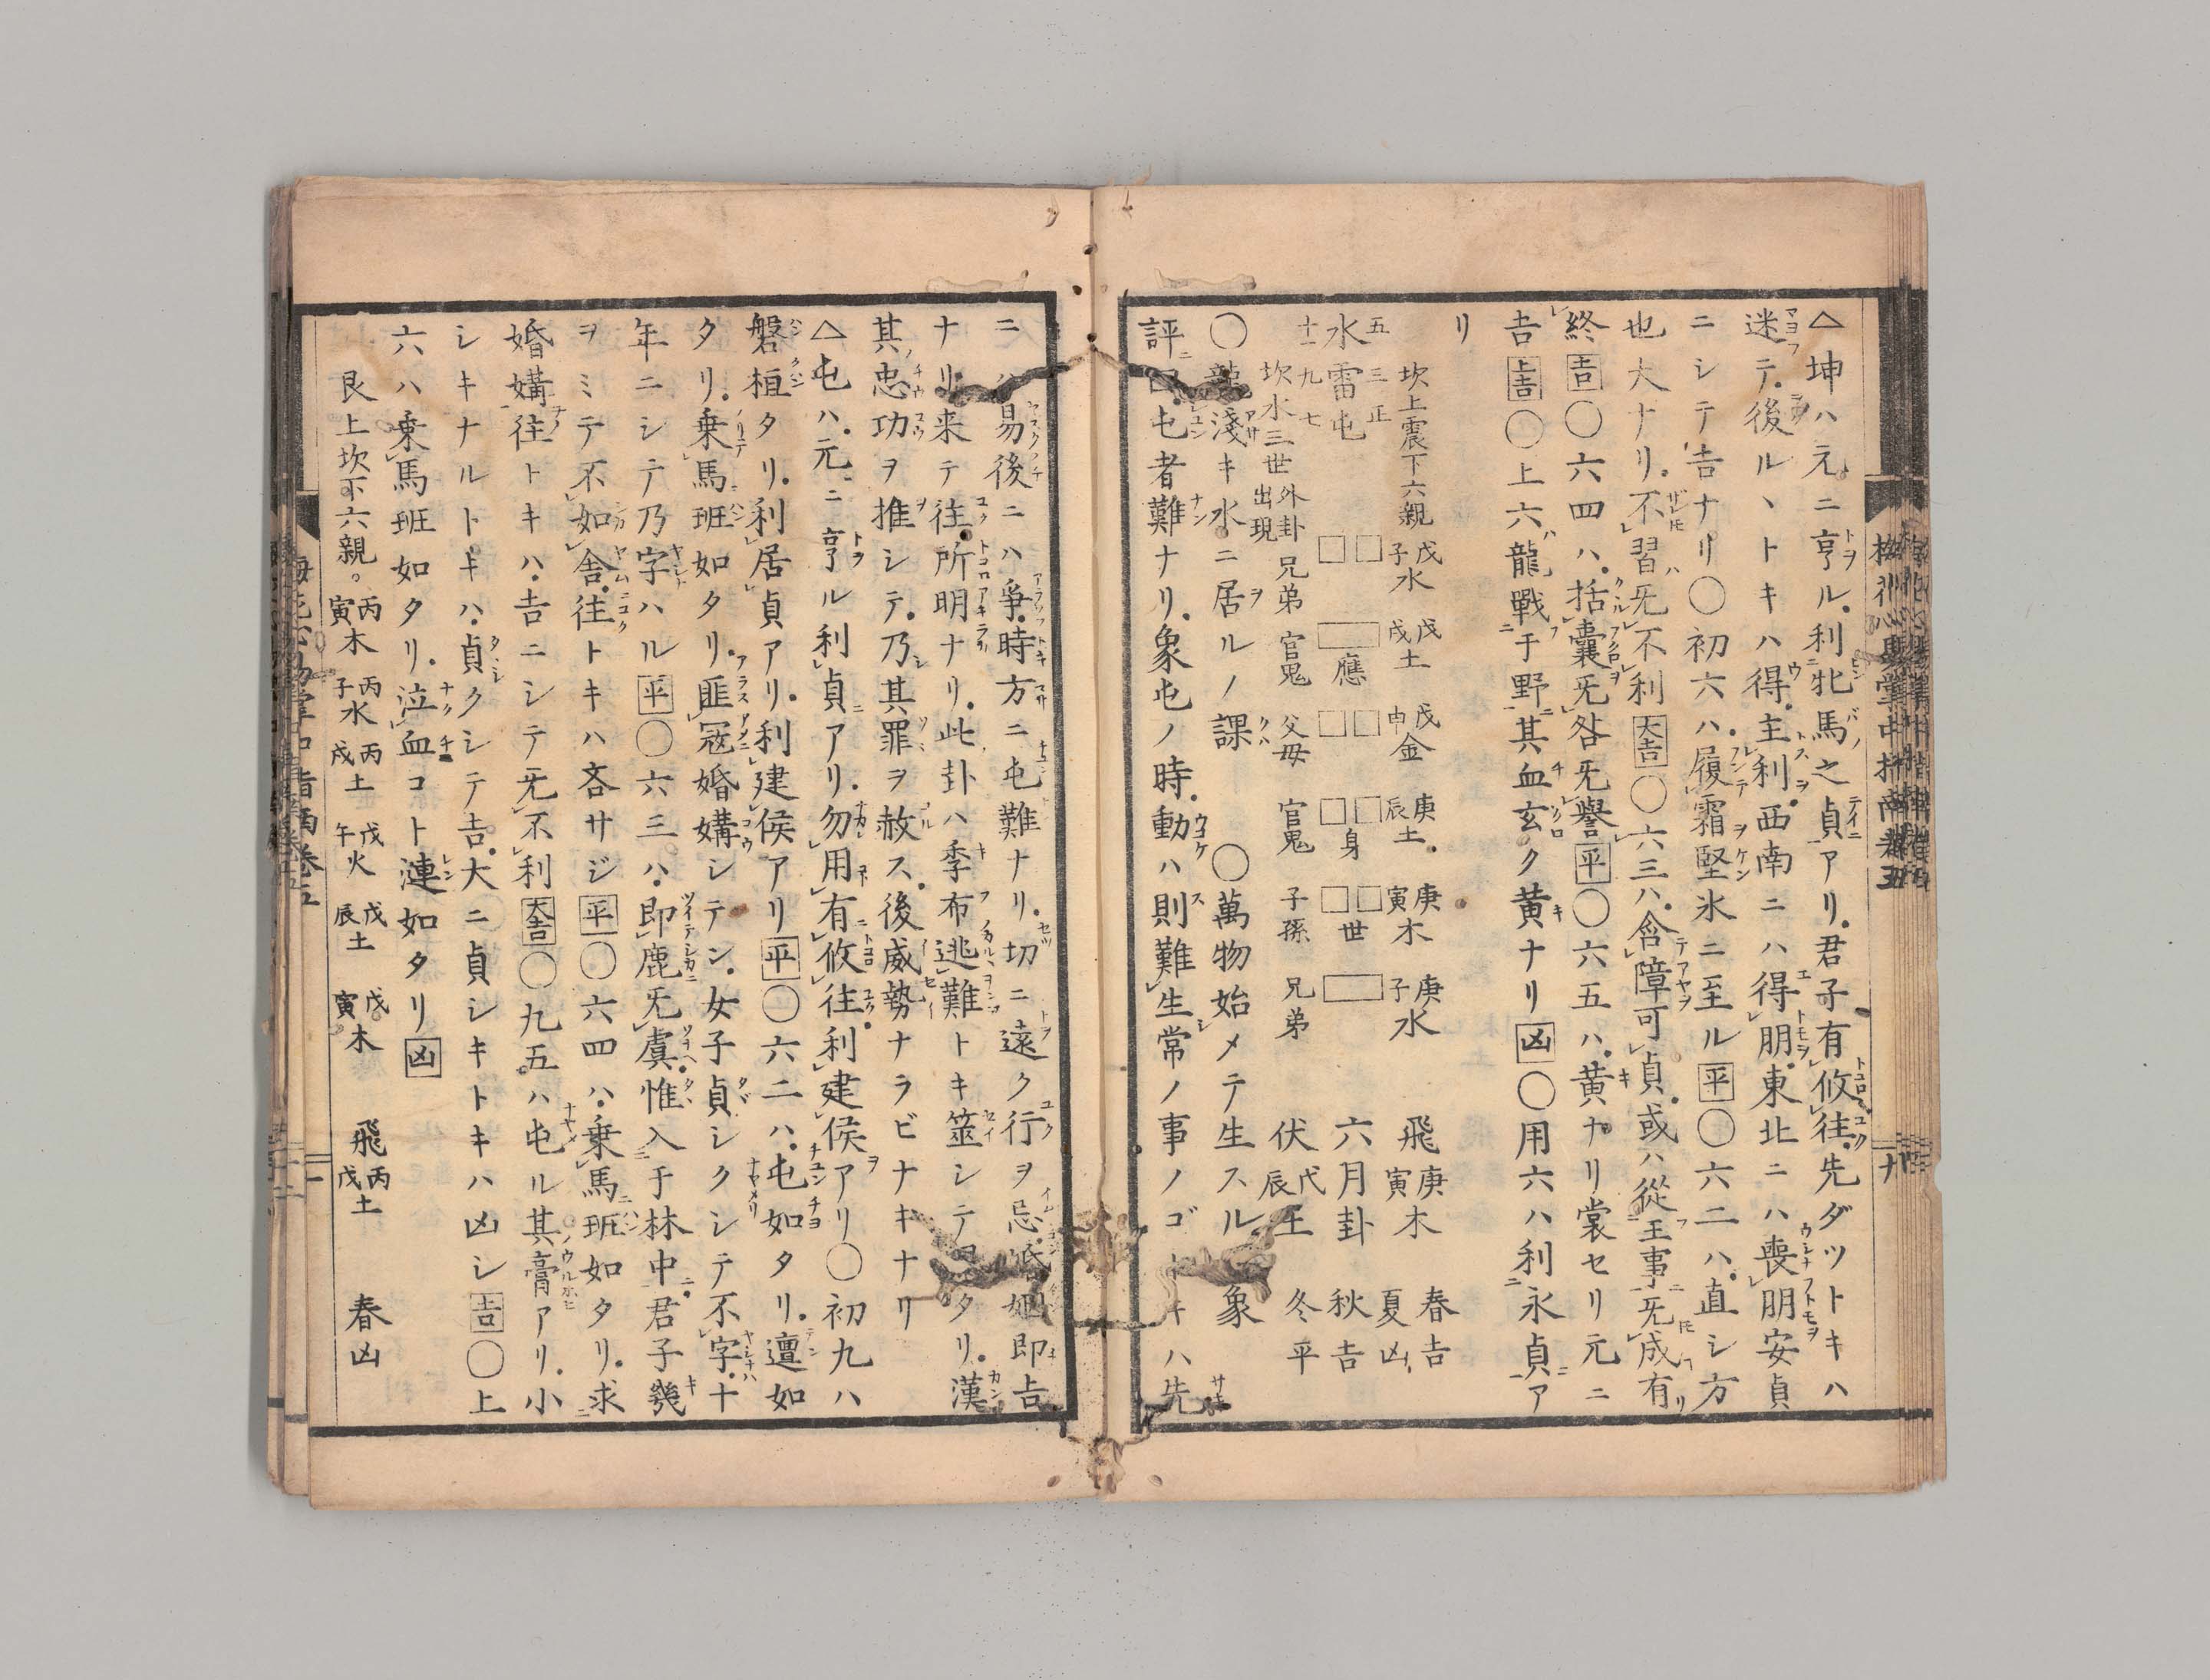 △坤ハ元ニ亨ル利牝馬之貞アリ君子有攸往先ダツトキハ
迷テ後ルヽトキハ得主利西南ニハ得朋東北ニハ喪朋安貞
ニシテ吉ナリ〇初六ハ履霜堅氷ニ至ル平〇六二ハ直シ方
也大ナリ不習旡不利大吉〇六三ハ含障可貞或ハ從王事旡成有
終吉〇六四ハ括囊旡咎旡譽平〇六五ハ黄ナリ裳セリ元ニ
吉上吉〇上六龍戰于野其血玄ク黄ナリ凶〇用六ハ利永貞ア
リ
坎上震下六親 戊子水 戊戌土 戊申金 庚辰土 庚寅木 庚子水 飛庚寅木 春吉 夏凶
五 三 正
水雷屯 應 身 世 六月卦 秋吉
十一 九 七
坎水三世外卦出現 兄弟 官鬼 父母 官鬼 子孫 兄弟 伏戊辰土 冬平
〇龍淺キ水ニ居ルノ課 〇萬物始メテ生スル象
評曰屯者難ナリ象屯ノ時動ハ則難生常ノ事ノゴトキハ先
ニハ易後ニハ爭時方ニ屯難ナリ切ニ遠ク行ヲ忌婚姻即吉
ナリ来テ往所明ナリ此卦ハ季布逃難トキ筮シテヱタリ漢
其忠功ヲ推シテ乃其罪ヲ赦ス後威勢ナラビナキナリ
△屯ハ元ニ亨ル利貞アリ勿用有攸往利建侯アリ〇初九ハ
磐桓タリ利居貞アリ利建侯アリ平〇六二ハ屯如タリ邅如
タリ乗馬班如タリ匪寇婚媾シテン女子貞シクシテ不字十
年ニシテ乃字ハル平〇六三ハ即鹿旡虞惟入于林中君子幾
ヲミテ不如舎往トキハ吝サジ平〇六四ハ乗馬班如タリ求
婚媾往トキハ吉ニシテ旡不利大吉〇九五ハ屯ル其膏アリ小
シキナルトキハ貞クシテ吉大ニ貞シキトキハ凶シ吉〇上
六ハ乗馬班如タリ泣血コト漣如タリ凶
艮上坎下六親 丙寅木 丙子水 丙戌土 戊午火 戊辰土 戊寅木 飛丙戌土 春凶